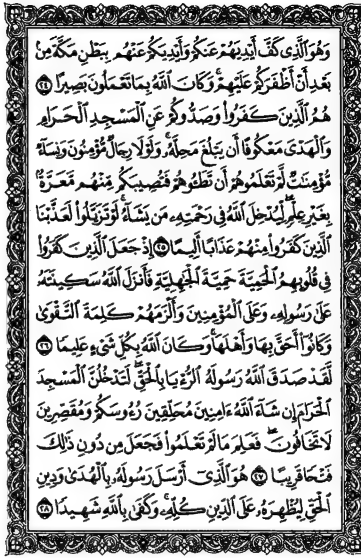 وَهُوَ ٱلَّذِى كَفَّ أَيْدِيَهُمْ عَنكُمْ وَأَيْدِيَكُمْ عَنْهُم بِبَطْنِ مَكَّةَ مِنۢ
بَعْدِ أَنْ أَظْفَرَكُمْ عَلَيْهِمْ ۚ وَكَانَ ٱللَّهُ بِمَا تَعْمَلُونَ بَصِيرًا ٢٤
هُمُ ٱلَّذِينَ كَفَرُوا۟ وَصَدُّوكُمْ عَنِ ٱلْمَسْجِدِ ٱلْحَرَامِ
وَٱلْهَدْىَ مَعْكُوفًا أَن يَبْلُغَ مَحِلَّهُۥ ۚ وَلَوْلَا رِجَالٌ مُّؤْمِنُونَ وَنِسَآءٌ
مُّؤْمِنَٰتٌ لَّمْ تَعْلَمُوهُمْ أَن تَطَـُٔوهُمْ فَتُصِيبَكُم مِّنْهُم مَّعَرَّةٌۢ
بِغَيْرِ عِلْمٍ ۖ لِّيُدْخِلَ ٱللَّهُ فِى رَحْمَتِهِۦ مَن يَشَآءُ ۚ لَوْ تَزَيَّلُوا۟ لَعَذَّبْنَا
ٱلَّذِينَ كَفَرُوا۟ مِنْهُمْ عَذَابًا أَلِيمًا ٢٥ إِذْ جَعَلَ ٱلَّذِينَ كَفَرُوا۟
فِى قُلُوبِهِمُ ٱلْحَمِيَّةَ حَمِيَّةَ ٱلْجَٰهِلِيَّةِ فَأَنزَلَ ٱللَّهُ سَكِينَتَهُۥ
عَلَىٰ رَسُولِهِۦ وَعَلَى ٱلْمُؤْمِنِينَ وَأَلْزَمَهُمْ كَلِمَةَ ٱلتَّقْوَىٰ
وَكَانُوٓا۟ أَحَقَّ بِهَا وَأَهْلَهَا ۚ وَكَانَ ٱللَّهُ بِكُلِّ شَىْءٍ عَلِيمًا ٢٦
لَّقَدْ صَدَقَ ٱللَّهُ رَسُولَهُ ٱلرُّءْيَا بِٱلْحَقِّ ۖ لَتَدْخُلُنَّ ٱلْمَسْجِدَ
ٱلْحَرَامَ إِن شَآءَ ٱللَّهُ ءَامِنِينَ مُحَلِّقِينَ رُءُوسَكُمْ وَمُقَصِّرِينَ
لَا تَخَافُونَ ۖ فَعَلِمَ مَا لَمْ تَعْلَمُوا۟ فَجَعَلَ مِن دُونِ ذَٰلِكَ
فَتْحًا قَرِيبًا ٢٧ هُوَ ٱلَّذِىٓ أَرْسَلَ رَسُولَهُۥ بِٱلْهُدَىٰ وَدِينِ
ٱلْحَقِّ لِيُظْهِرَهُۥ عَلَى ٱلدِّينِ كُلِّهِۦ ۚ وَكَفَىٰ بِٱللَّهِ شَهِيدًا ٢٨